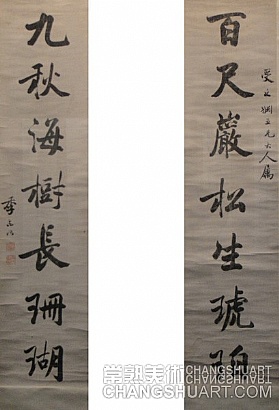 百尺巖松生琥珀
大人屬
九秋海樹長珊瑚
季念詒
常熟美術CHANGSHUART
CHANGSHUART.COM